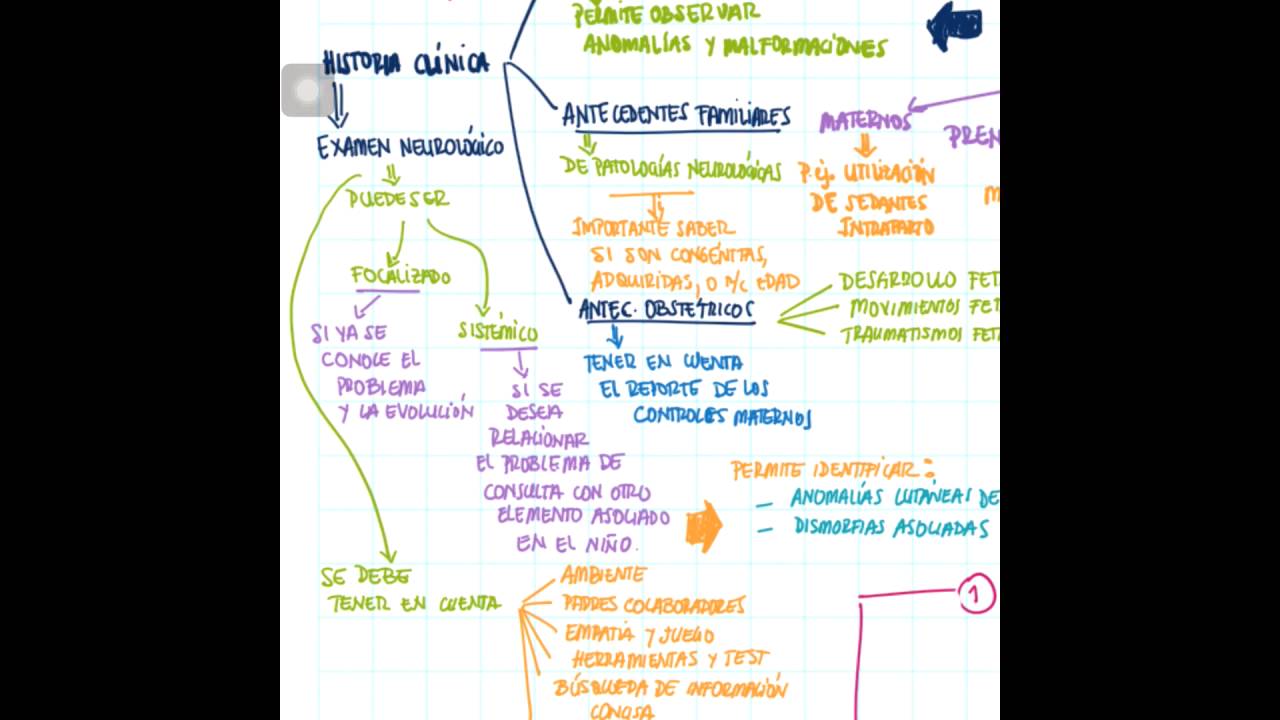 PERMITE OBSERVAR
ANOMALÍAS Y MALFORMACIONES
HISTORIA CLÍNICA
EXAMEN NEUROLÓGICO
PUEDE SER
FOCALIZADO
SI YA SE
CONOCE EL
PROBLEMA
Y LA EVOLUCIÓN
SISTÉMICO
SI SE
DESEA
RELACIONAR
EL PROBLEMA DE
CONSULTA CON OTRO
ELEMENTO ASOCIADO
EN EL NIÑO.
SE DEBE
TENER EN CUENTA
AMBIENTE
PADRES COLABORADORES
EMPATÍA Y JUEGO
HERRAMIENTAS Y TEST
BÚSQUEDA DE INFORMACIÓN
CONCISA
ANTECEDENTES FAMILIARES
DE PATOLOGÍAS NEUROLÓGICAS
IMPORTANTE SABER
SI SON CONGÉNITAS,
ADQUIRIDAS, O N/C EDAD
ANTEC. OBSTÉTRICOS
TENER EN CUENTA
EL REPORTE DE LOS
CONTROLES MATERNOS
MATERNOS
P. ej. UTILIZACIÓN
DE SEDANTES
INTRAPARTO
PREN
M
DESARROLLO FET
MOVIMIENTOS FET
TRAUMATISMOS FET
PERMITE IDENTIFICAR:
- ANOMALÍAS CUTÁNEAS DE
- DISMORFIAS ASOCIADAS
1